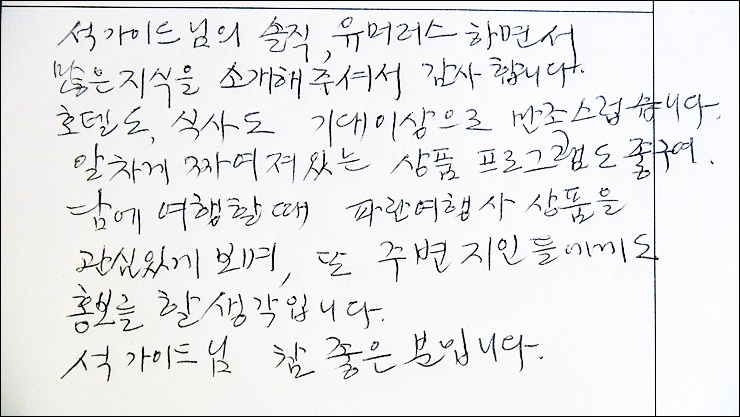 석 가이드님의 솔직, 유머러스 하면서
많은 지식을 소개해 주셔서 감사 합니다.
호텔도, 식사도 기대이상으로 만조스럽습니다.
알차게 짜여져있는 상품 프로그램도 좋구여.
담에 여행할때 파란여행사 상품을
관심있게 보며, 또 주변 지인들에게도
홍보를 할 생각입니다.
석 가이드님 참 좋은 분입니다.